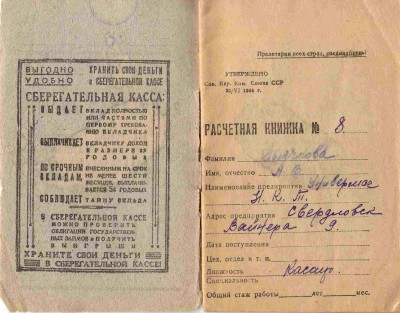 ВЫГОДНО
УДОБНО
ХРАНИТЬ СВОИ ДЕНЬГИ
В СБЕРЕГАТЕЛЬНОЙ КАССЕ
СБЕРЕГАТЕЛЬНАЯ КАССА:
ВЫДАЕТ
ВКЛАД ПОЛНОСТЬЮ
ИЛИ ЧАСТЯМИ ПО
ПЕРВОМУ ТРЕБОВА-
НИЮ ВКЛАДЧИКА
ВЫПЛАЧИВАЕТ
ВКЛАДЧИКУ ДОХОД
В РАЗМЕРЕ
ГОДОВЫХ
ПО СРОЧНЫМ
ВКЛАДАМ,
ВНЕСЕННЫМ НА СРОК
НЕ МЕНЕЕ ШЕСТИ
МЕСЯЦЕВ, ВЫПЛАЧИ-
ВАЕТСЯ ГОДОВЫХ
СОБЛЮДАЕТ
ТАЙНУ ВКЛАДА
В СБЕРЕГАТЕЛЬНОЙ КАССЕ
МОЖНО ПРОВЕРИТЬ
ОБЛИГАЦИИ ГОСУДАРСТВЕН-
НЫХ ЗАЙМОВ И ПОЛУЧИТЬ
ВЫИГРЫШИ
ХРАНИТЕ СВОИ ДЕНЬГИ
В СБЕРЕГАТЕЛЬНОЙ КАССЕ!
Пролетарии всех стран, соединяйтесь!
УТВЕРЖДЕНО
Сов. Нар. Ком. Союза ССР
РАСЧЕТНАЯ КНИЖКА № 8.
Фамилия
Имя, отчество
Наименование предприятия Универмаг
Н. К. Т.
Адрес предприятия Свердловск
Вайнера 9.
Дата поступления
Цех, отдел и т. п.
Должность
Специальность
Кассир.
Общий стаж работы лет мес.